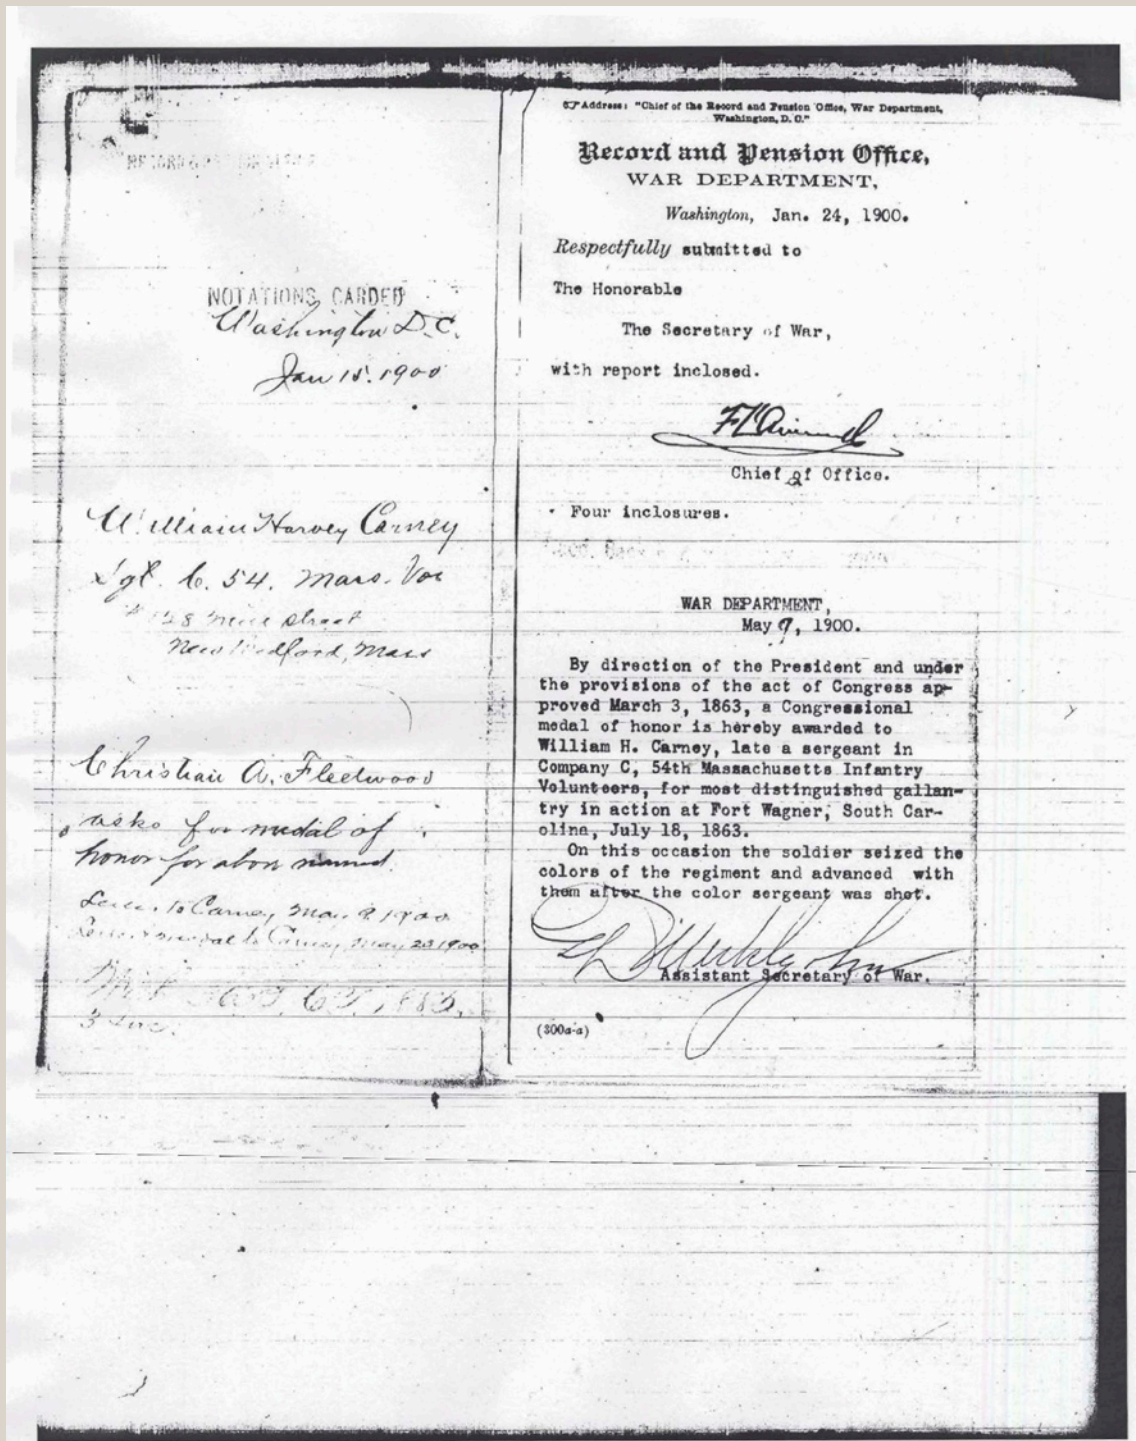 RECORD & PENSION OFFICE
NOTATIONS CARDED
Washington D.C.
Jan 15. 1900
William Harvey Carney
Sgt. C. 54. Mass. Vol
128 street
New Bedford, Mass
Christian A. Fleetwood
asks for medal of
honor for above named.
to Carney, May 9 1900
medal to Carney, May 23 1900
3 Inc.
Address: "Chief of the Record and Pension Office, War Department,
Washington, D. C."
Record and Pension Office,
WAR DEPARTMENT,
Washington, Jan. 24, 1900.
Respectfully submitted to
The Honorable
The Secretary of War,
with report inclosed.
F C Ainsworth
Chief of Office.
Four inclosures.
WAR DEPARTMENT,
May 9, 1900.
By direction of the President and under
the provisions of the act of Congress ap-
proved March 3, 1863, a Congressional
medal of honor is hereby awarded to
William H. Carney, late a sergeant in
Company C, 54th Massachusetts Infantry
Volunteers, for most distinguished gallan-
try in action at Fort Wagner, South Car-
olina, July 18, 1863.
On this occasion the soldier seized the
colors of the regiment and advanced with
them after the color sergeant was shot.
Assistant Secretary of War.
(300a-a)